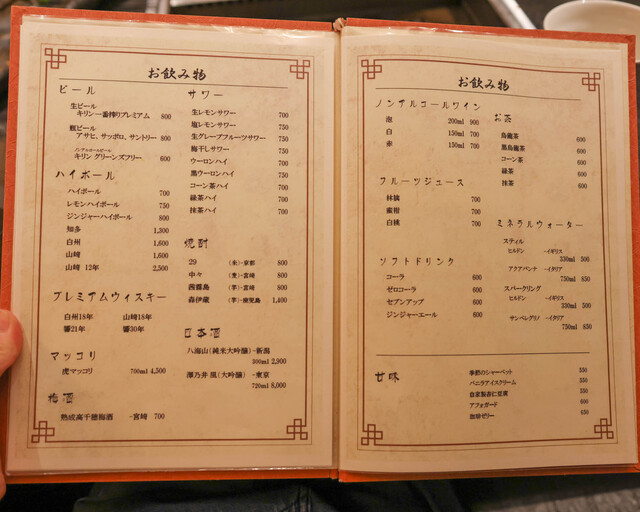 お飲み物
ビール
生ビール
キリン一番搾りプレミアム 800
瓶ビール
アサヒ、サッポロ、サントリー 800
ノンアルコールビール
キリン グリーンズフリー 600
ハイボール
ハイボール 700
レモンハイボール 750
ジンジャーハイボール 800
知多 1,300
白州 1,600
山崎 1,600
山崎 12年 2,500
プレミアムウィスキー
白州18年 山崎18年
響21年 響30年
マッコリ
虎マッコリ 700ml 4,500
梅酒
熟成高千穂梅酒 -宮崎 700
サワー
生レモンサワー 700
塩レモンサワー 700
生グレープフルーツサワー 750
梅干しサワー 700
ウーロンハイ 700
黒ウーロンハイ 700
コーン茶ハイ 700
緑茶ハイ 700
抹茶ハイ 700
焼酎
29 (米)-京都 800
中々 (麦)-宮崎 800
茜霧島 (芋)-宮崎 800
森伊蔵 (芋)-鹿児島 1,400
日本酒
八海山(純米大吟醸)-新潟
300ml 2,900
澤乃井 凰(大吟醸) -東京
720ml 8,000
お飲み物
ノンアルコールワイン
泡 200ml 900
白 150ml 700
赤 150ml 700
フルーツジュース
林檎 700
蜜柑 700
白桃 700
ソフトドリンク
コーラ 600
ゼロコーラ 600
セブンアップ 600
ジンジャーエール 600
お茶
烏龍茶 600
黒烏龍茶 600
コーン茶 600
緑茶 600
抹茶 600
ミネラルウォーター
スティル
ヒルドン -イギリス
330ml 500
アクアパンナ -イタリア
750ml 850
スパークリング
ヒルドン -イギリス
330ml 500
サンペレグリノ -イタリア
750ml 850
甘味
季節のシャーベット 550
バニラアイスクリーム 550
自家製杏仁豆腐 550
アフォガード 600
珈琲ゼリー 650